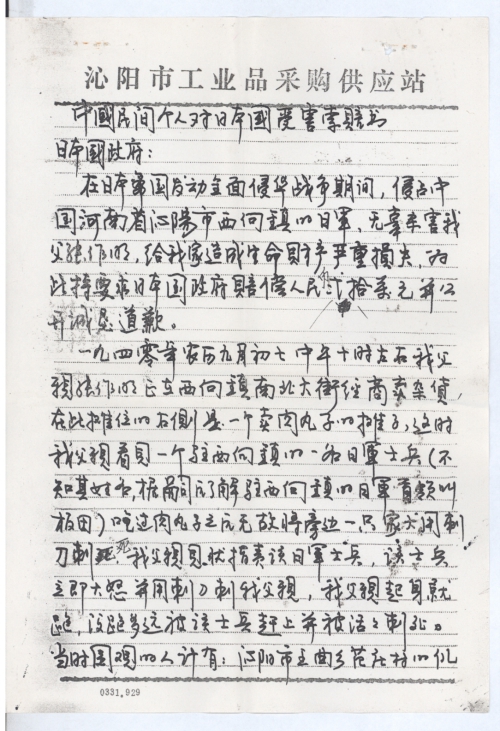 沁阳市工业品采购供应站
中國民间个人对日本國受害索賠书
日本國政府：
在日本軍国发动全面侵华战争期间，侵占中
国河南省沁陽市西向鎮的日軍，无辜杀害我
父張作明，给我家造成生命財产严重損失，为
此特要求日本国政府賠償人民币 拾萬元并公
开诚恳道歉。
一九四零年农历九月初七中午十时左右我父
親張作明正在西向鎮南北大街經商卖杂貨，
在此摊位的右側是一个卖肉丸子的摊子，这时
我父親看見一个駐西向鎮的一名日軍士兵（不
知其姓名，據前后了解駐西向鎮的日軍首領叫
板田）吃过肉丸子之后无故將旁边一只家犬用刺
刀刺死 我父親見狀指责该日軍士兵，该士兵
立即大怒并用刺刀刺我父親，我父親起身就
跑，没跑多远被该士兵赶上并被活活刺死。
当时围观的人计有：沁阳市王曲乡范庄村的
0331,929